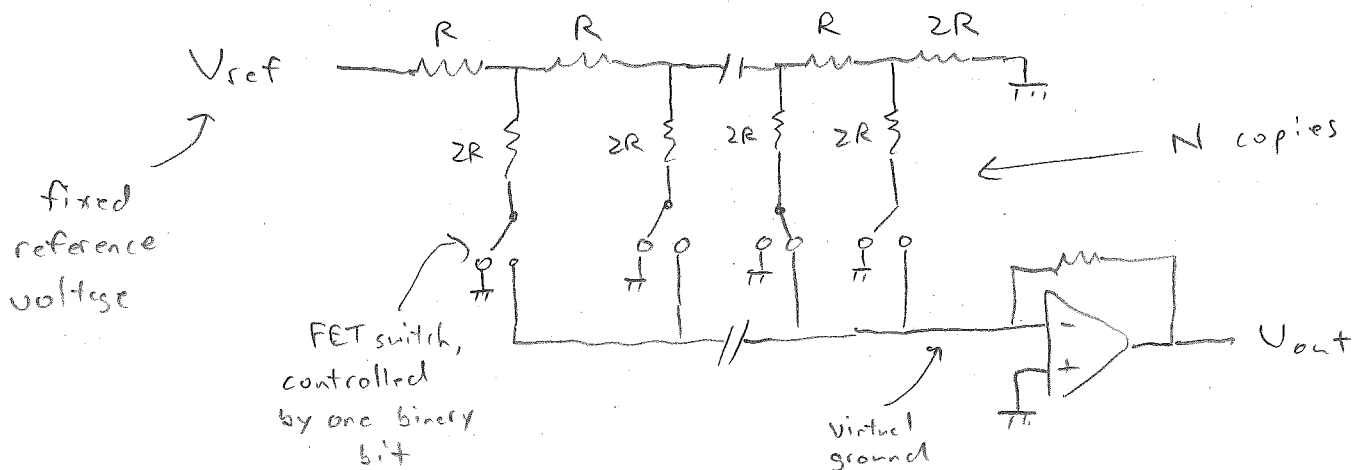 R R R 2R
Vref
2R 2R 2R 2R
N copies
fixed
reference
voltage
FET switch,
controlled
by one binary
bit
-
+
Vout
virtual
ground